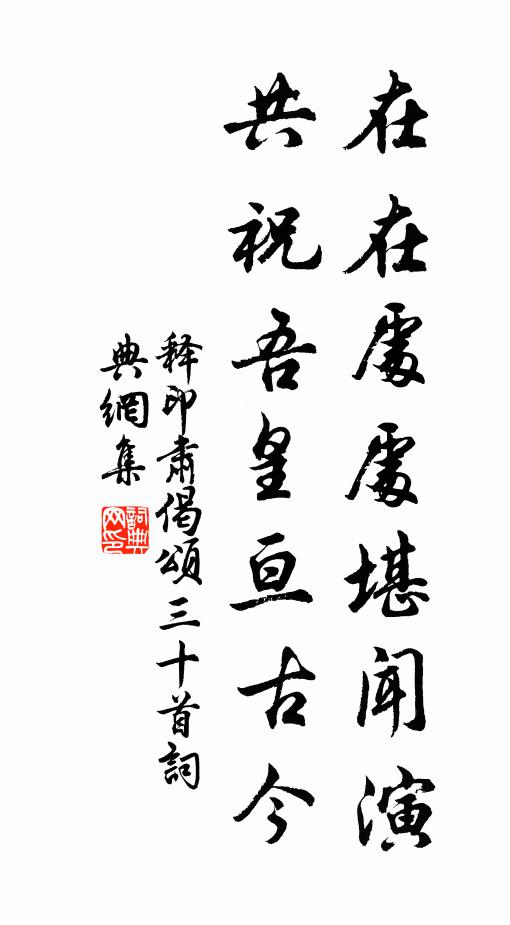 在在處處堪聞演
共祝吾皇亘古今
释印肅偈頌三十首詞
典網集
詞典網印